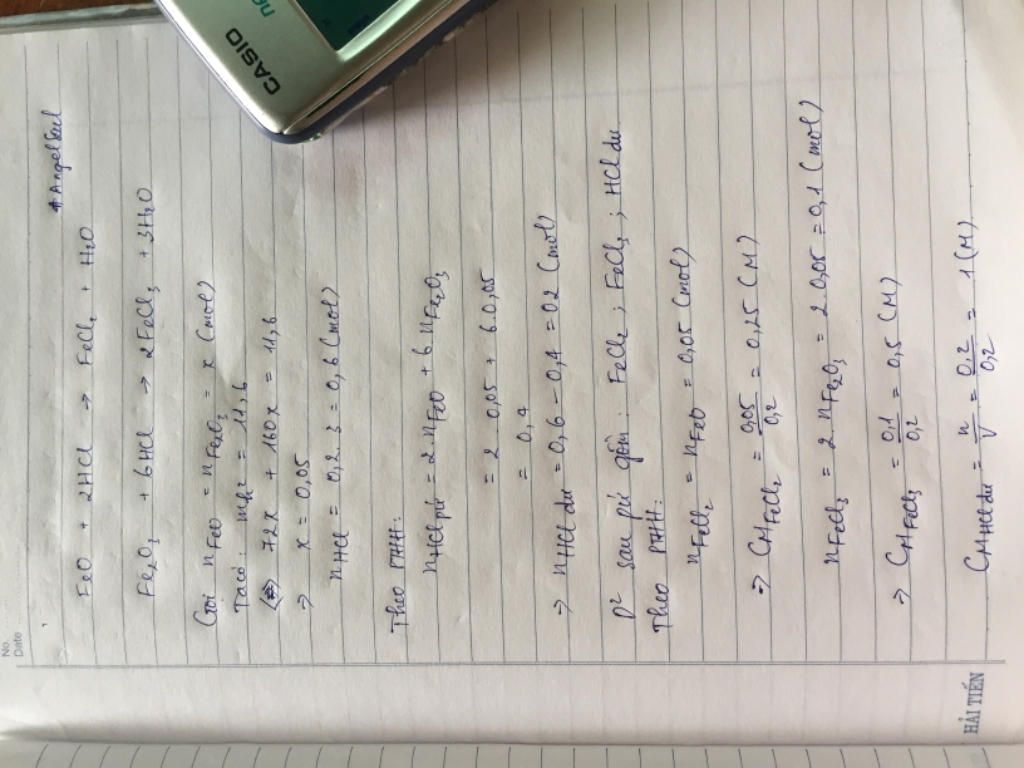 No.
Date
Angel Seul
FeO + 2HCl → FeCl₂ + H₂O
Fe₂O₃ + 6HCl → 2FeCl₃ + 3H₂O
Gọi nFeO = nFe₂O₃ = x (mol)
Ta có: mhh = 11,6
(=> 72x + 160x = 11,6
=> x = 0,05
nHCl = 0,2.3 = 0,6 (mol)
Theo PTHH:
nHClpứ = 2.nFeO + 6nFe₂O₃
= 2.0,05 + 6.0,05
= 0,4
=> nHCl dư = 0,6 - 0,4 = 0,2 (mol)
D² sau pứ gồm: FeCl₂ ; FeCl₃ ; HCl dư
Theo PTHH:
nFeCl₂ = nFeO = 0,05 (mol)
=> CMFeCl₂ = 0,05/0,2 = 0,25 (M)
nFeCl₃ = 2nFe₂O₃ = 2.0,05 = 0,1 (mol)
=> CMFeCl₃ = 0,1/0,2 = 0,5 (M)
CMHCl dư = n/V = 0,2/0,2 = 1 (M)
HẢI TIẾN
CASIO